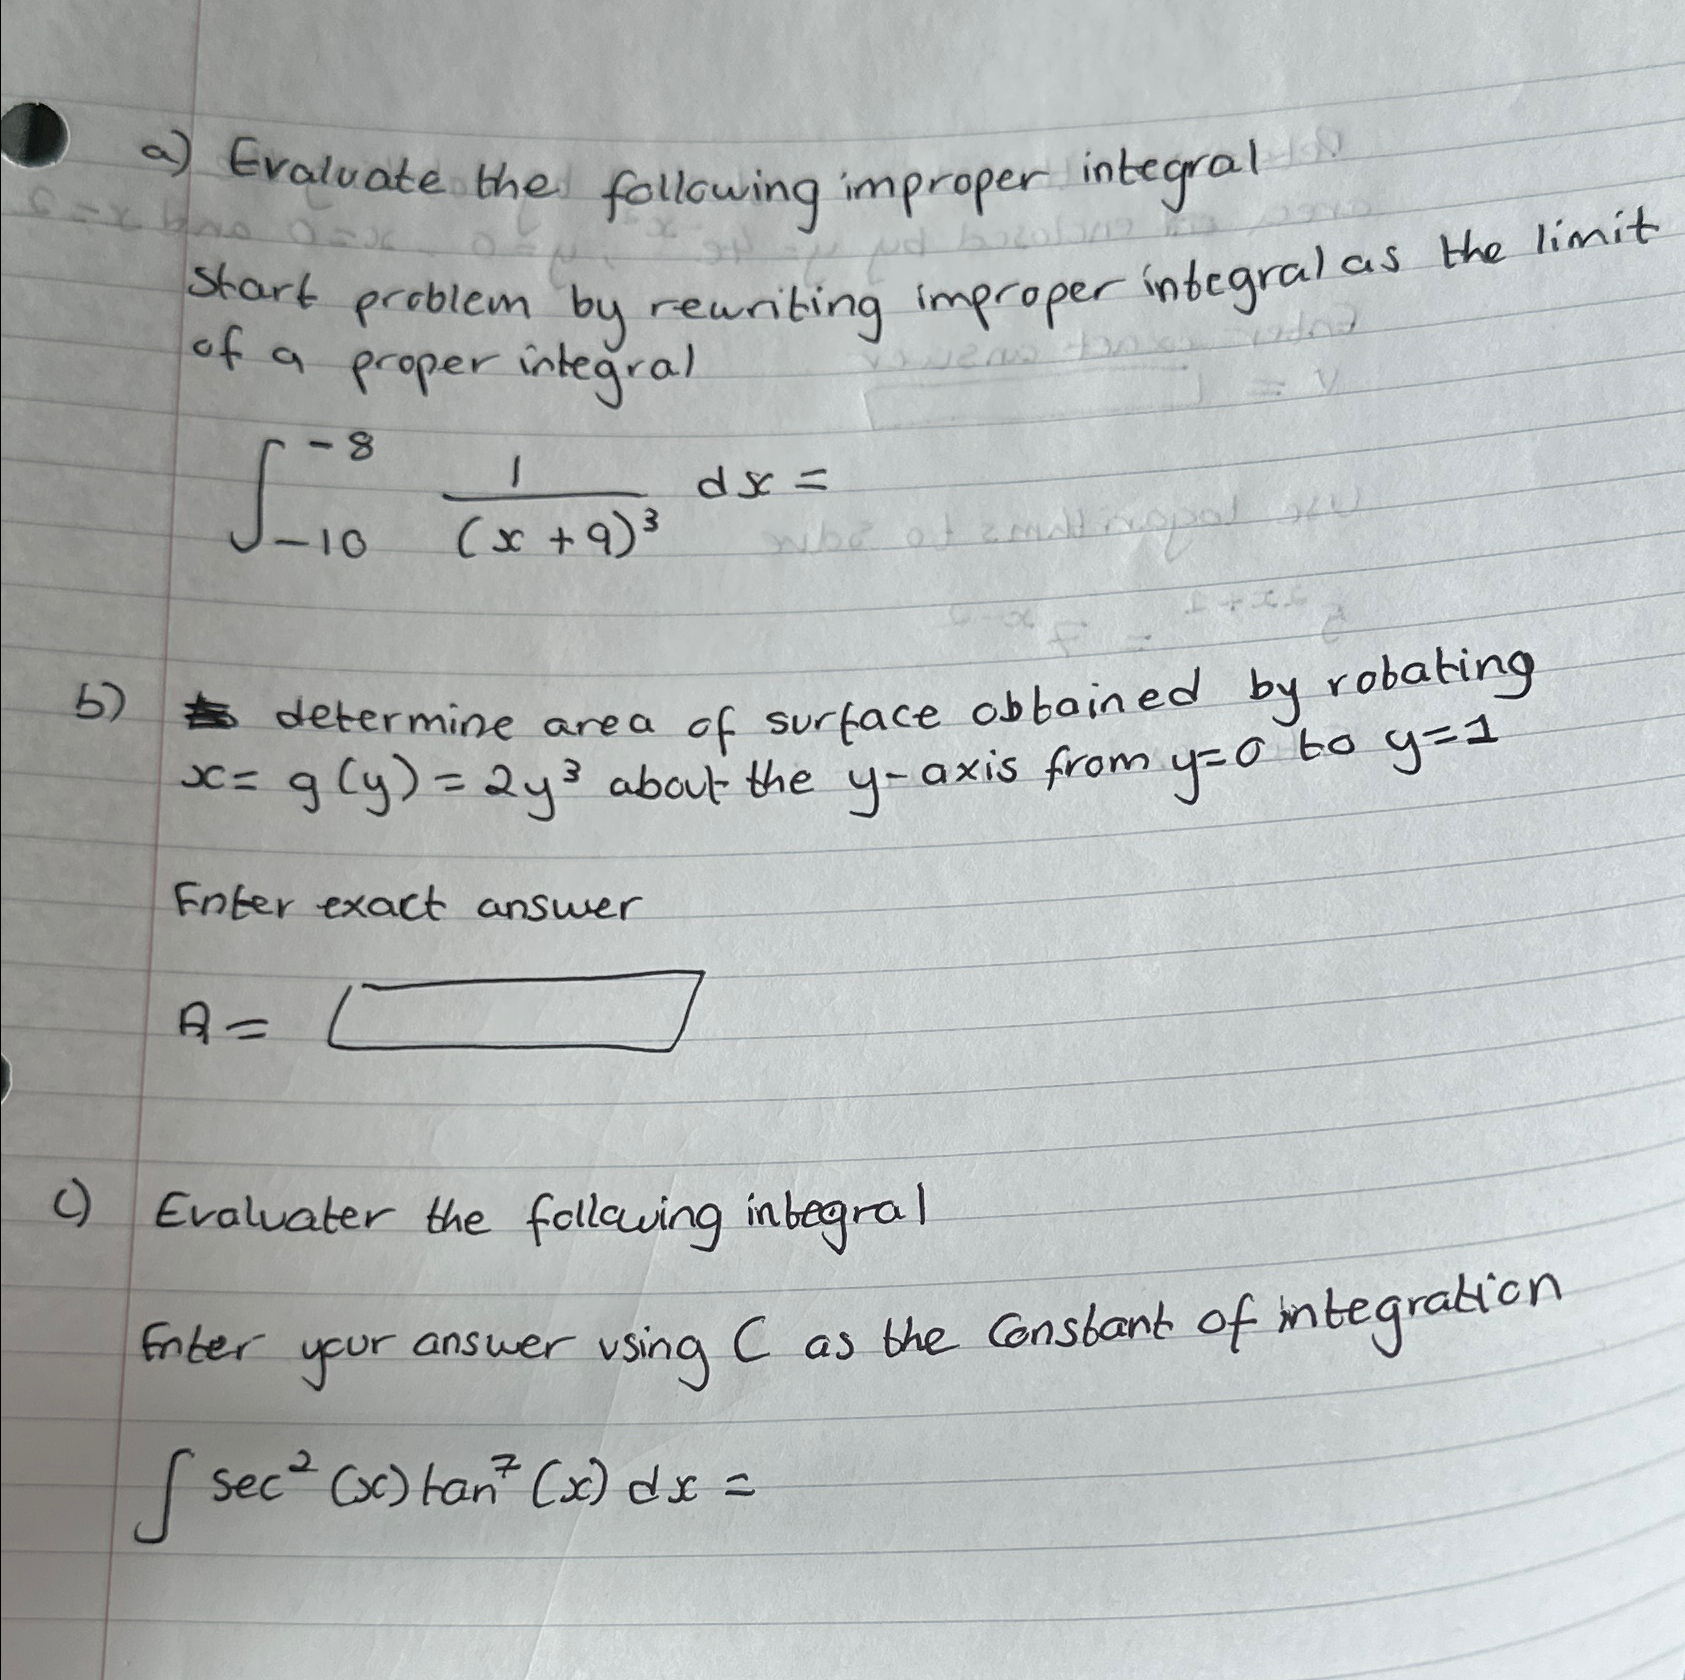 a) Evaluate the following improper integral
Start problem by rewriting improper integral as the limit
of a proper integral
∫_{-10}^{-8} 1/(x+9)^3 dx =
b) determine area of surface obtained by robating
x = g(y) = 2y^3 about the y-axis from y=0 to y=1
Enter exact answer
A =
c) Evaluater the following integral
Enter your answer using C as the Constant of integration
∫ sec^2 (x) tan^7 (x) dx =